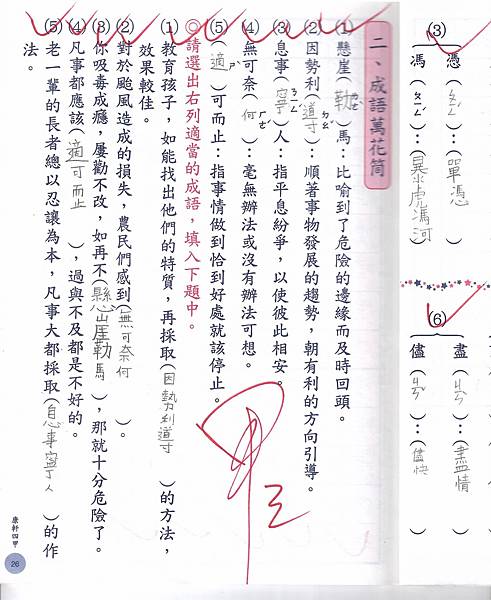 (3)
憑(ㄆㄥˊ):(單憑)
馮(ㄆㄥˊ):(暴虎馮河)
(6)
盡(ㄐㄧㄣˋ):(盡情)
儘(ㄐㄧㄣˇ):(儘快)
二、成語萬花筒
(1)懸崖(勒)馬:比喻到了危險的邊緣而及時回頭。
(2)因勢利(導):順著事物發展的趨勢,朝有利的方向引導。
(3)息事(寧)人:指平息紛爭,以使彼此相安。
(4)無可奈(何):毫無辦法或沒有辦法可想。
(5)(適)可而止:指事情做到恰到好處就該停止。
◎請選出右列適當的成語,填入下題中。
(1)教育孩子,如能找出他們的特質,再採取(因勢利導)的方法,
效果較佳。
(2)對於颱風造成的損失,農民們感到(無可奈何)。
(3)你吸毒成癮,屢勸不改,如再不(懸崖勒馬),那就十分危險了。
(4)凡事都應該(適可而止),過與不及都是不好的。
(5)老一輩的長者總以忍讓為本,凡事大都採取(息事寧人)的作
法。
康軒四甲
26